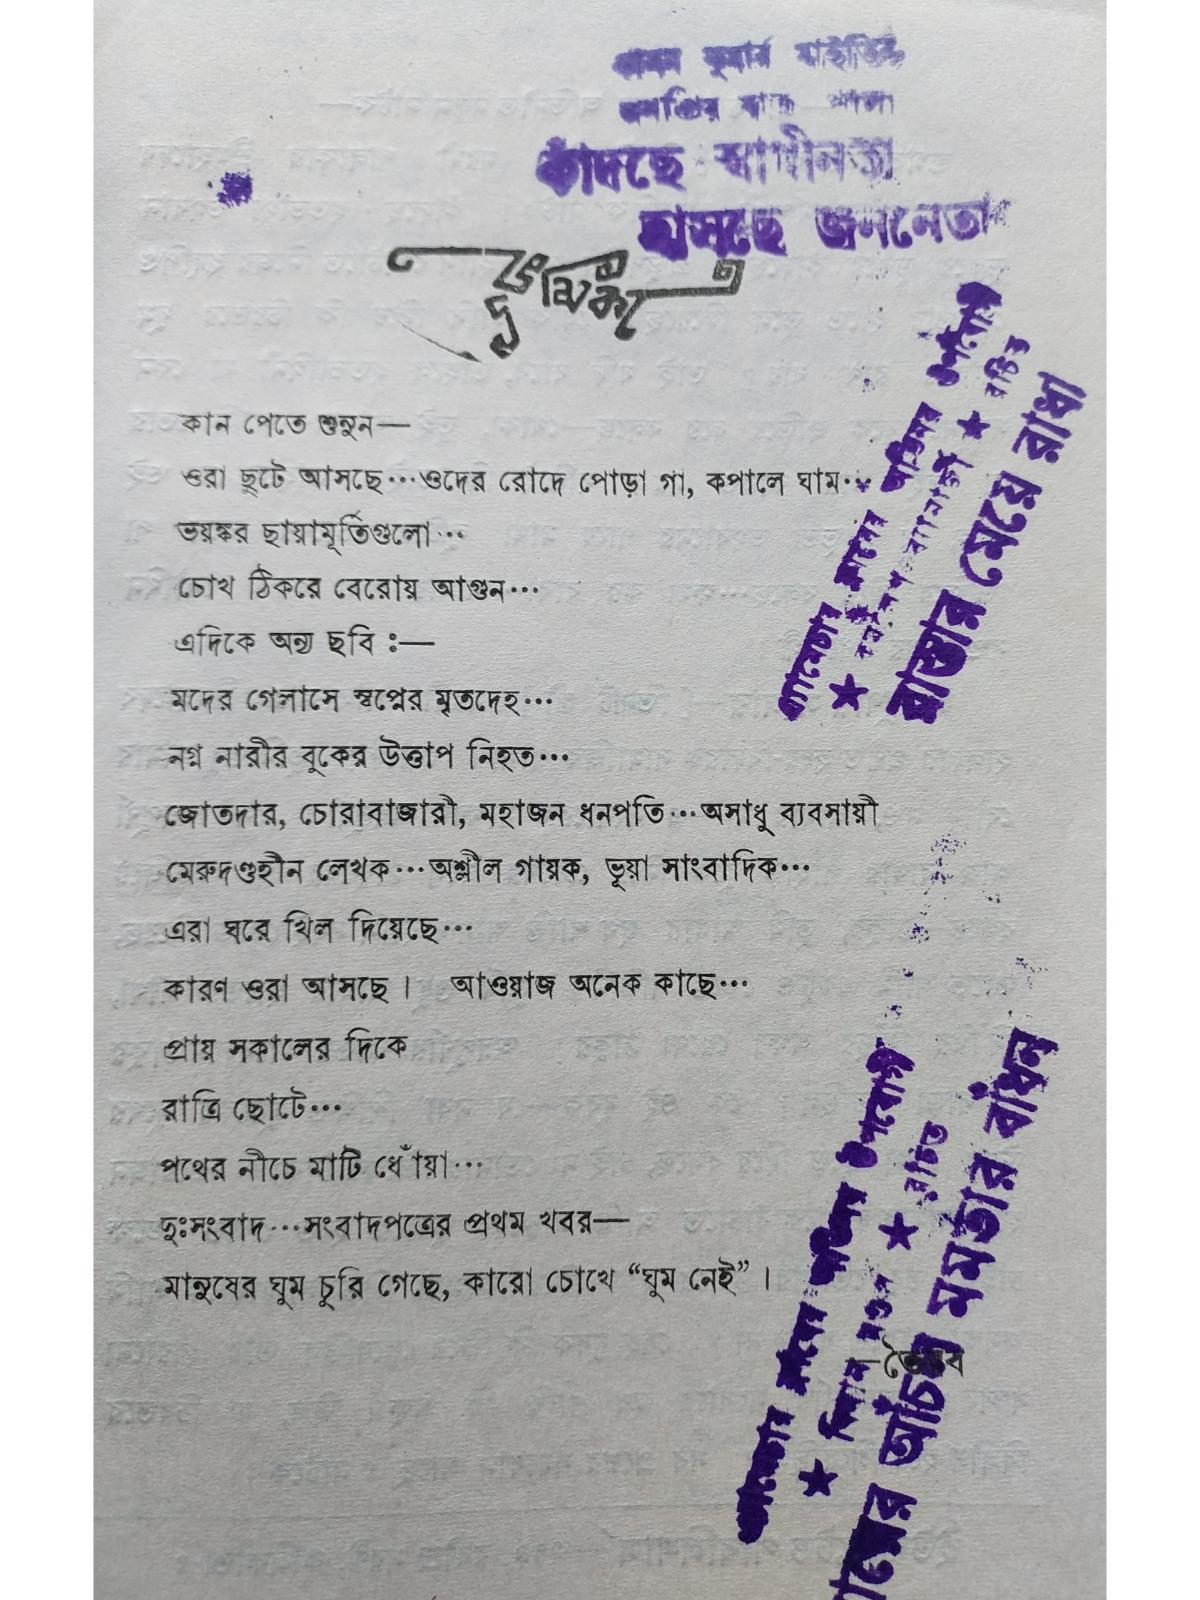 কুমার মাইতির
কাঁদছে স্বাধীনতা
হাসছে জননেতা
ভূমিকা
কান পেতে শুনুন—
ওরা ছুটে আসছে···ওদের রোদে পোড়া গা, কপালে ঘাম···
ভয়ঙ্কর ছায়ামূর্তিগুলো···
চোখ ঠিকরে বেরোয় আগুন···
এদিকে অন্য ছবি ঃ—
মদের গেলাসে স্বপ্নের মৃতদেহ···
নগ্ন নারীর বুকের উত্তাপ নিহত···
জোতদার, চোরাবাজারী, মহাজন ধনপতি···অসাধু ব্যবসায়ী
মেরুদণ্ডহীন লেখক···অশ্লীল গায়ক, ভূয়া সাংবাদিক···
এরা ঘরে খিল দিয়েছে···
কারণ ওরা আসছে। আওয়াজ অনেক কাছে···
প্রায় সকালের দিকে
রাত্রি ছোটে···
পথের নীচে মাটি ধোঁয়া···
দুঃসংবাদ···সংবাদপত্রের প্রথম খবর—
মানুষের ঘুম চুরি গেছে, কারো চোখে “ঘুম নেই”।
—ভৈরব
অ্যামেচার ক্লাবের অভিনয় উপযোগী
★ ★ রচিত
রাস্তার মেয়ে রাধা
অ্যামেচার ক্লাবের অভিনয় উপযোগী
★ ★ রচিত
মায়ের আঁচল মমতার বাঁধন